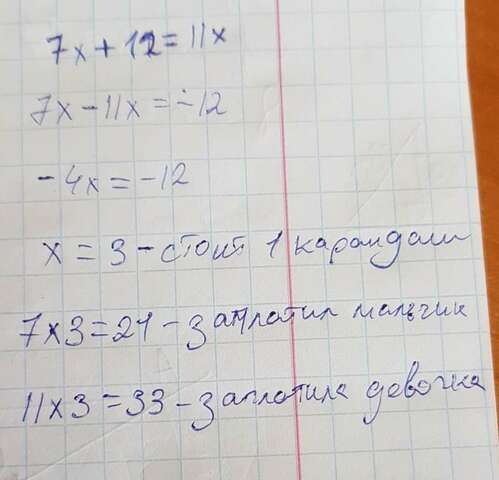 7x + 12 = 11x
7x - 11x = -12
- 4x = -12
x = 3 - стоит 1 карандаш
7x3 = 21 - заплатил мальчик
11x3 = 33 - заплатила девочка